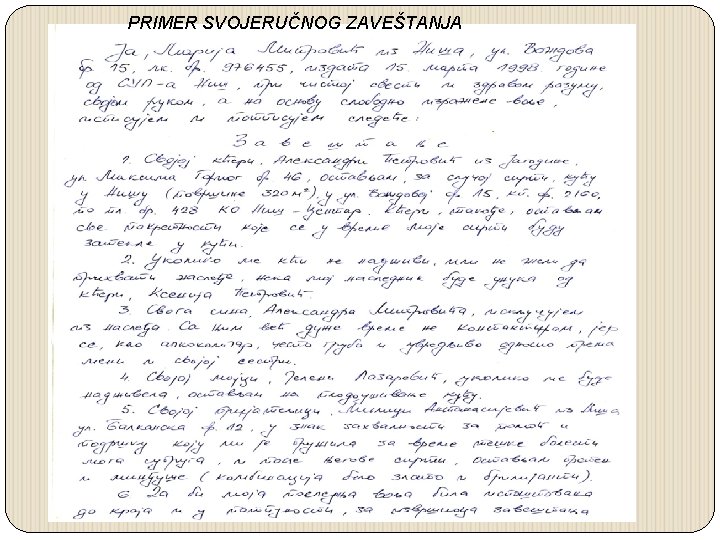 PRIMER SVOJERUČNOG ZAVEŠTANJA
Ја, Марија Митровић из Ниша, ул. Вождова
бр. 15, лк. бр. 976455, издата 15. марта 1998. године
од СУП-а Ниш, при чистој свести и здравом разуму,
својом руком, а на основу слободно изражене воље,
исписујем и потписујем следеће:
Завештање
1. Својој кћери, Александри Петровић из Јагодине,
ул. Максима Горког бр 46, остављам, за случај смрти, кућу
у Нишу (површине 320 м²), у ул. Вождовој бр. 15, кп. бр. 2160,
по пл. бр. 428 КО Ниш - Центар. Кћери, такође, остављам
све покретности које се у време моје смрти буду
затекле у кући.
2. Уколико ме кћи не надживи, или не жели да
прихвати наслеђе, нека мој наследник буде унука од
кћери, Ксенија Петровић.
3. Свога сина, Александра Митровића, искључујем
из наслеђа. Са њим већ дуже време не контактирам, јер
се, као алкохоличар, често грубо и увредљиво односио према
мени и својој сестри.
4. Својој мајци, Јелени Лазаровић, уколико ме буде
надживела, остављам на плодоуживање кућу.
5. Својој пријатељици, Милици Антанасијевић из Ниша,
ул. Балканска бр. 12, у знак захвалности за помоћ и
подршку коју ми је пружила за време тешке болести
мога супруга, и после његове смрти, остављам прстен
и минђуше (комбинација бело злато и брилијанти).
6 Да би моја последња воља била испоштована
до краја и у потпуности, за извршиоца завештања